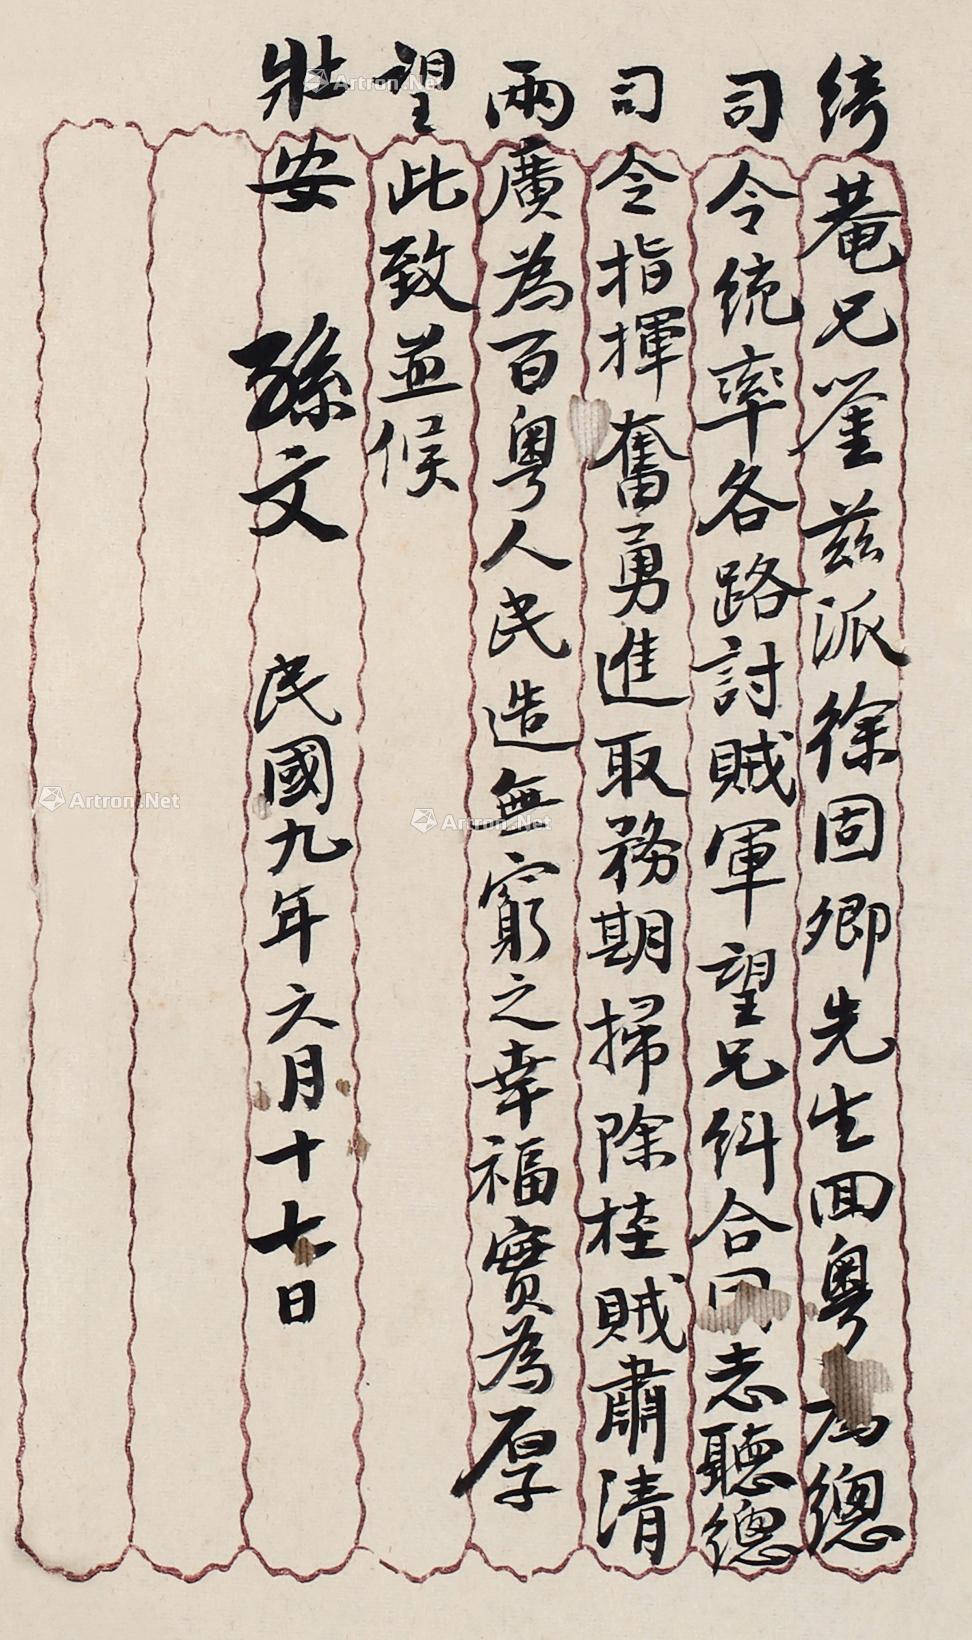 綺菴兄鑒茲派徐固卿先生回粵為總
司令統率各路討賊軍望兄糾合同志聽總
司令指揮奮勇進取務期掃除桂賊肅清
兩廣為百粵人民造無窮之幸福實為厚
望此致並候
壯安 孫文 民國九年六月十七日
Artron.Net
Artron.Net
Artron.Net
Artron.Net